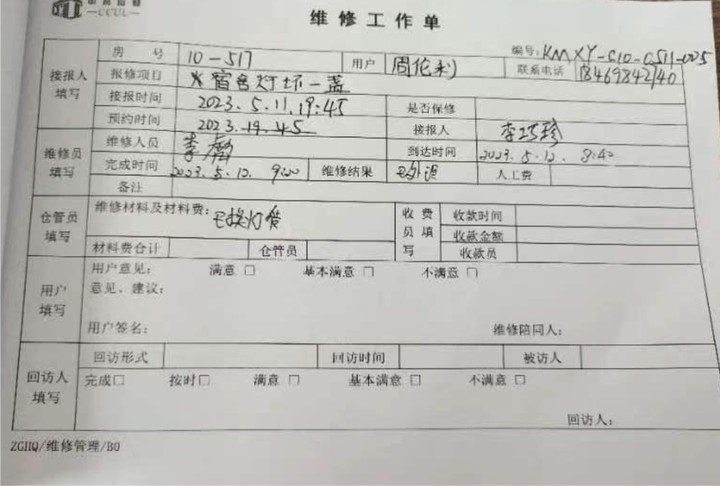 CCUL
维修工作单
编号: KMXY-C10-0511-005
接报人填写
房 号 10-517 用户 周伦利 联系电话 18469842740
报修项目 宿舍灯坏一盏
接报时间 2023.5.11.19:45 是否保修
预约时间 2023.19.45 接报人 李巧珍
维修员填写
维修人员 李 到达时间 2023.5.12. 8:40
完成时间 2023.5.12. 9:00 维修结果 已处理 人工费
备注
仓管员填写
维修材料及材料费: 已换灯管
材料费合计 仓管员
收费员填写
收款时间
收款金额
收款员
用户填写
用户意见: 满意 □ 基本满意 □ 不满意 □
意见、建议:
用户签名: 维修陪同人:
回访人填写
回访形式 回访时间 被访人
完成□ 按时□ 满意 □ 基本满意 □ 不满意 □
回访人:
ZGHQ/维修管理/B0